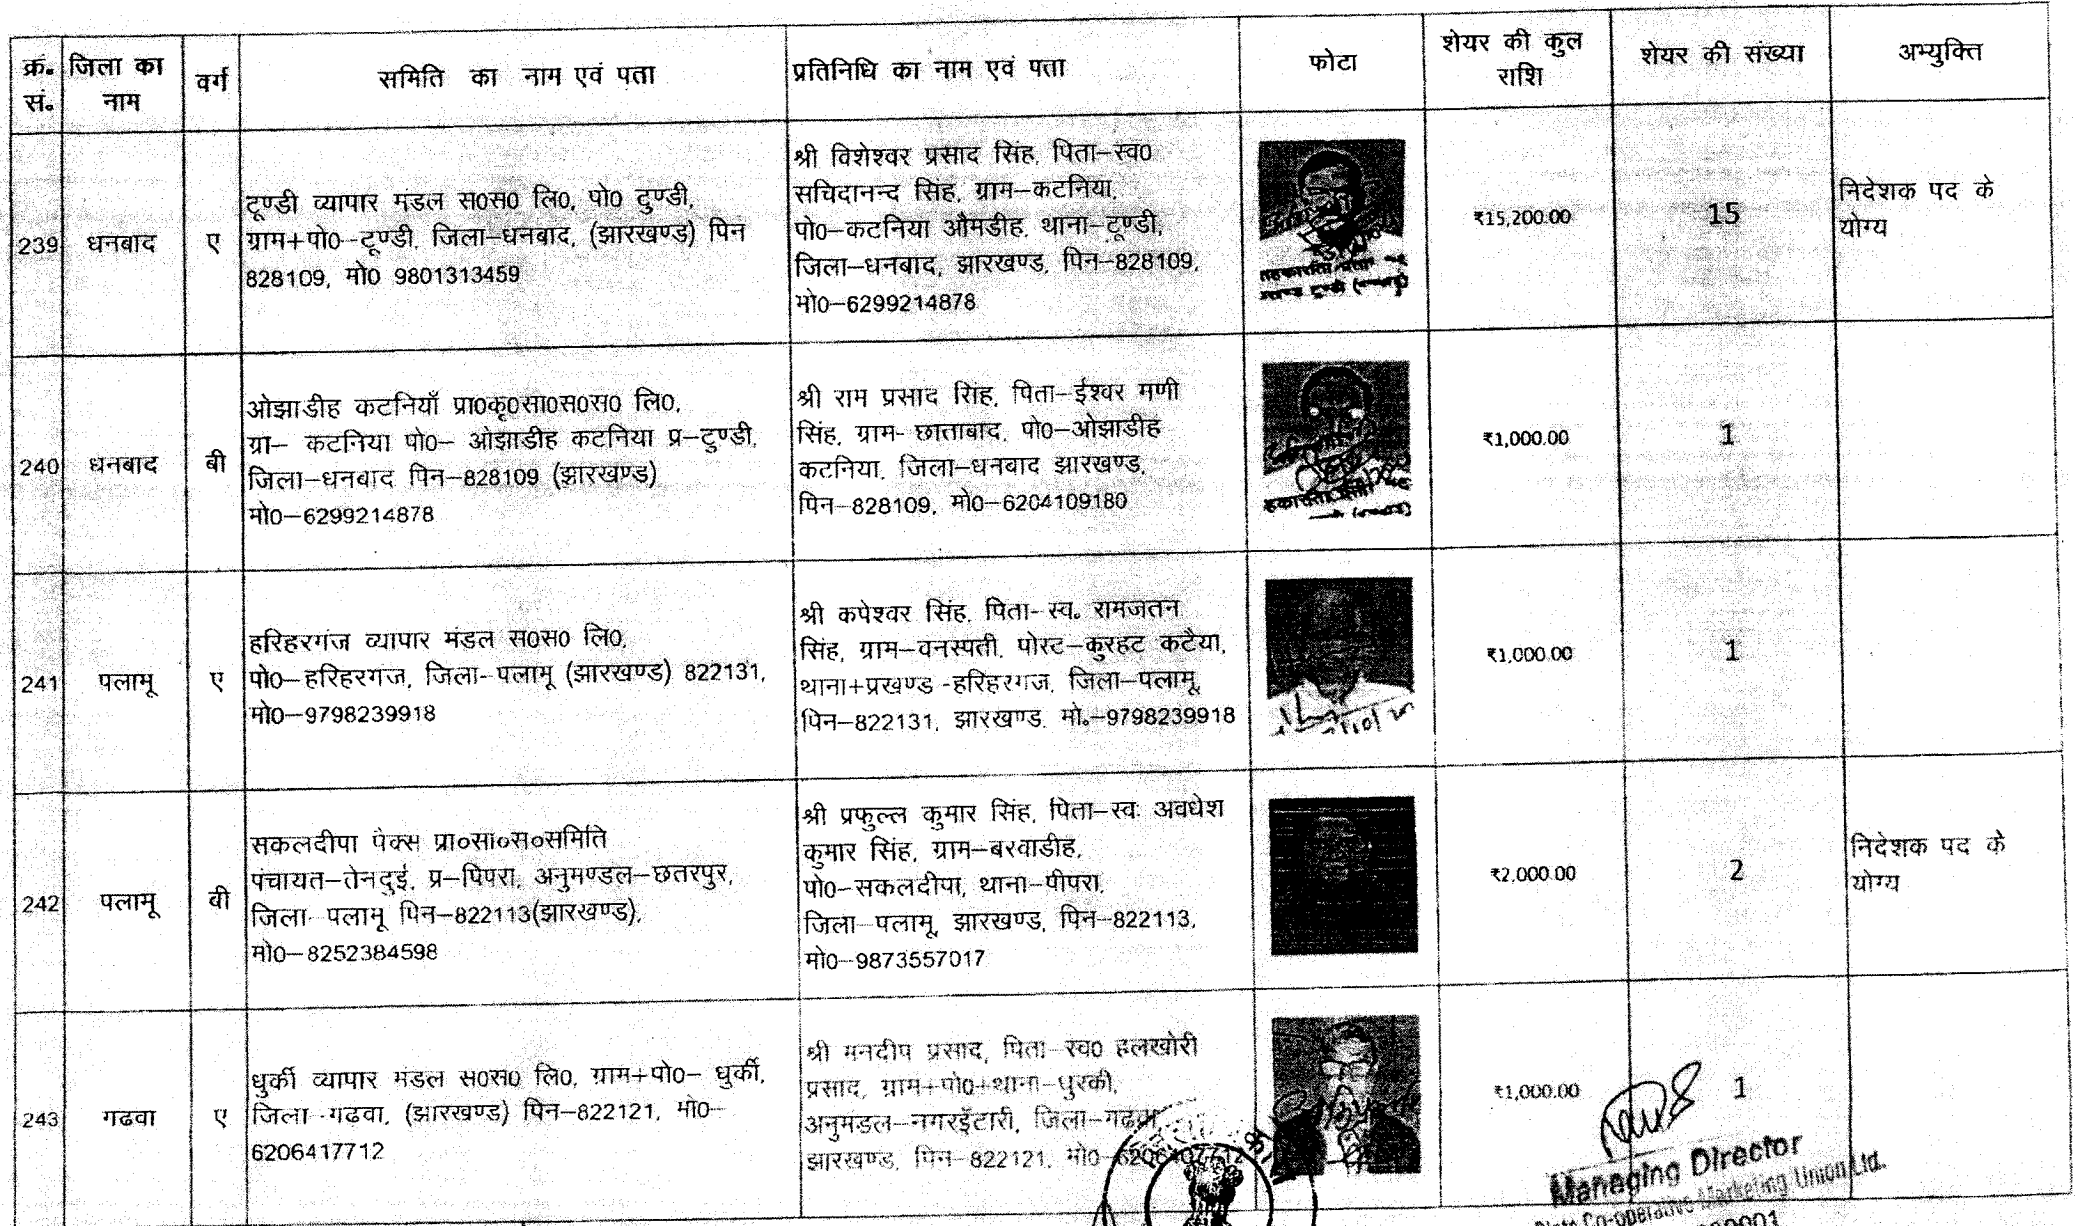 क्र. सं. जिला का नाम वर्ग समिति का नाम एवं पता प्रतिनिधि का नाम एवं पता फोटा शेयर की कुल राशि शेयर की संख्या अभ्युक्ति
239 धनबाद ए
टूण्डी व्यापार मंडल स0स0 लि0, पो0 टुण्डी,
ग्राम+पो0–टूण्डी, जिला–धनबाद, (झारखण्ड) पिन
828109, मो0 9801313459
श्री विशेश्वर प्रसाद सिंह, पिता–स्व0
सचिदानन्द सिंह, ग्राम–कटनिया,
पो0–कटनिया औमडीह, थाना–टूण्डी,
जिला–धनबाद, झारखण्ड, पिन–828109,
मो0–6299214878
₹15,200.00 15
निदेशक पद के
योग्य
240 धनबाद बी
ओझाडीह कटनियाँ प्रा0कृ0सा0स0स0 लि0,
ग्रा– कटनिया पो0– ओझाडीह कटनिया प्र–टुण्डी,
जिला–धनबाद पिन–828109 (झारखण्ड)
मो0–6299214878
श्री राम प्रसाद सिंह, पिता–ईश्वर मणी
सिंह, ग्राम- छाताबाद, पो0–ओझाडीह
कटनिया, जिला–धनबाद झारखण्ड,
पिन–828109, मो0–6204109180
₹1,000.00 1
241 पलामू ए
हरिहरगंज व्यापार मंडल स0स0 लि0,
पो0–हरिहरगंज, जिला–पलामू (झारखण्ड) 822131,
मो0–9798239918
श्री कपेश्वर सिंह, पिता- स्व. रामजतन
सिंह, ग्राम–वनस्पती, पोस्ट–कुरहट कटैया,
थाना+प्रखण्ड -हरिहरगज, जिला–पलामू,
पिन–822131, झारखण्ड, मो.–9798239918
₹1,000.00 1
242 पलामू बी
सकलदीपा पैक्स प्रा०सा०स०समिति
पंचायत–तेनदुई, प्र–पिपरा, अनुमण्डल–छतरपुर,
जिला- पलामू पिन–822113(झारखण्ड),
मो0–8252384598
श्री प्रफुल्ल कुमार सिंह, पिता–स्वः अवधेश
कुमार सिंह, ग्राम–बरवाडीह,
पो0–सकलदीपा, थाना–पीपरा,
जिला–पलामू, झारखण्ड, पिन–822113,
मो0–9873557017
₹2,000.00 2
निदेशक पद के
योग्य
243 गढवा ए
धुर्की व्यापार मंडल स0स0 लि0, ग्राम+पो0– धुर्की,
जिला -गढवा, (झारखण्ड) पिन–822121, मो0–
6206417712
श्री मनदीप प्रसाद, पिता- स्व0 हलखोरी
प्रसाद, ग्राम+पो0+थाना–धुरकी,
अनुमंडल–नगरइँटारी, जिला–गढवा,
झारखण्ड, पिन–822121, मो0–6206407712
₹1,000.00 1
Managing Director
Co-operative Marketing Union Ltd.